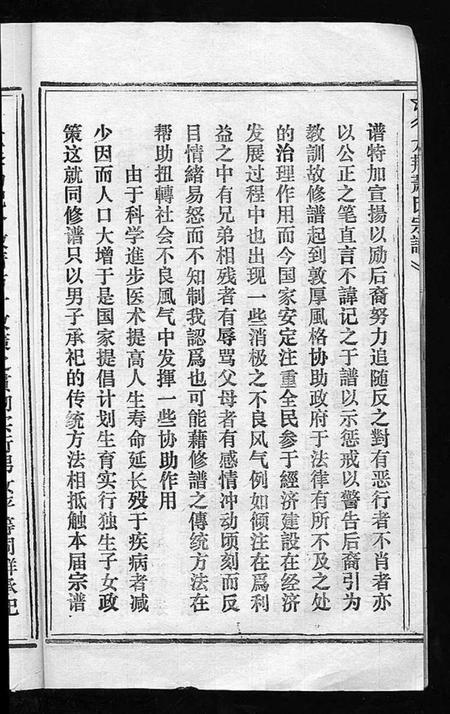 萧氏宗譜
谱特加宣揚以励后裔努力追随反之對有恶行者不肖者亦
以公正之笔直言不諱记之于譜以示惩戒以警告后裔引为
教訓故修譜起到敦厚風格协助政府于法律有所不及之处
的治理作用而今国家安定注重全民参于經济建設在经济
发展过程中也出现一些消极之不良风气例如倾注在爲利
益之中有兄弟相残者有辱骂父母者有感情冲动顷刻而反
目情緒易怒而不知制我認爲也可能藉修譜之傳统方法在
帮助扭轉社会不良風气中发揮一些协助作用
由于科学進步医术提高人生寿命延长殁于疾病者减
少因而人口大增于是国家提倡计划生育实行独生子女政
策这就同修谱只以男子承祀的传统方法相抵触本届宗谱